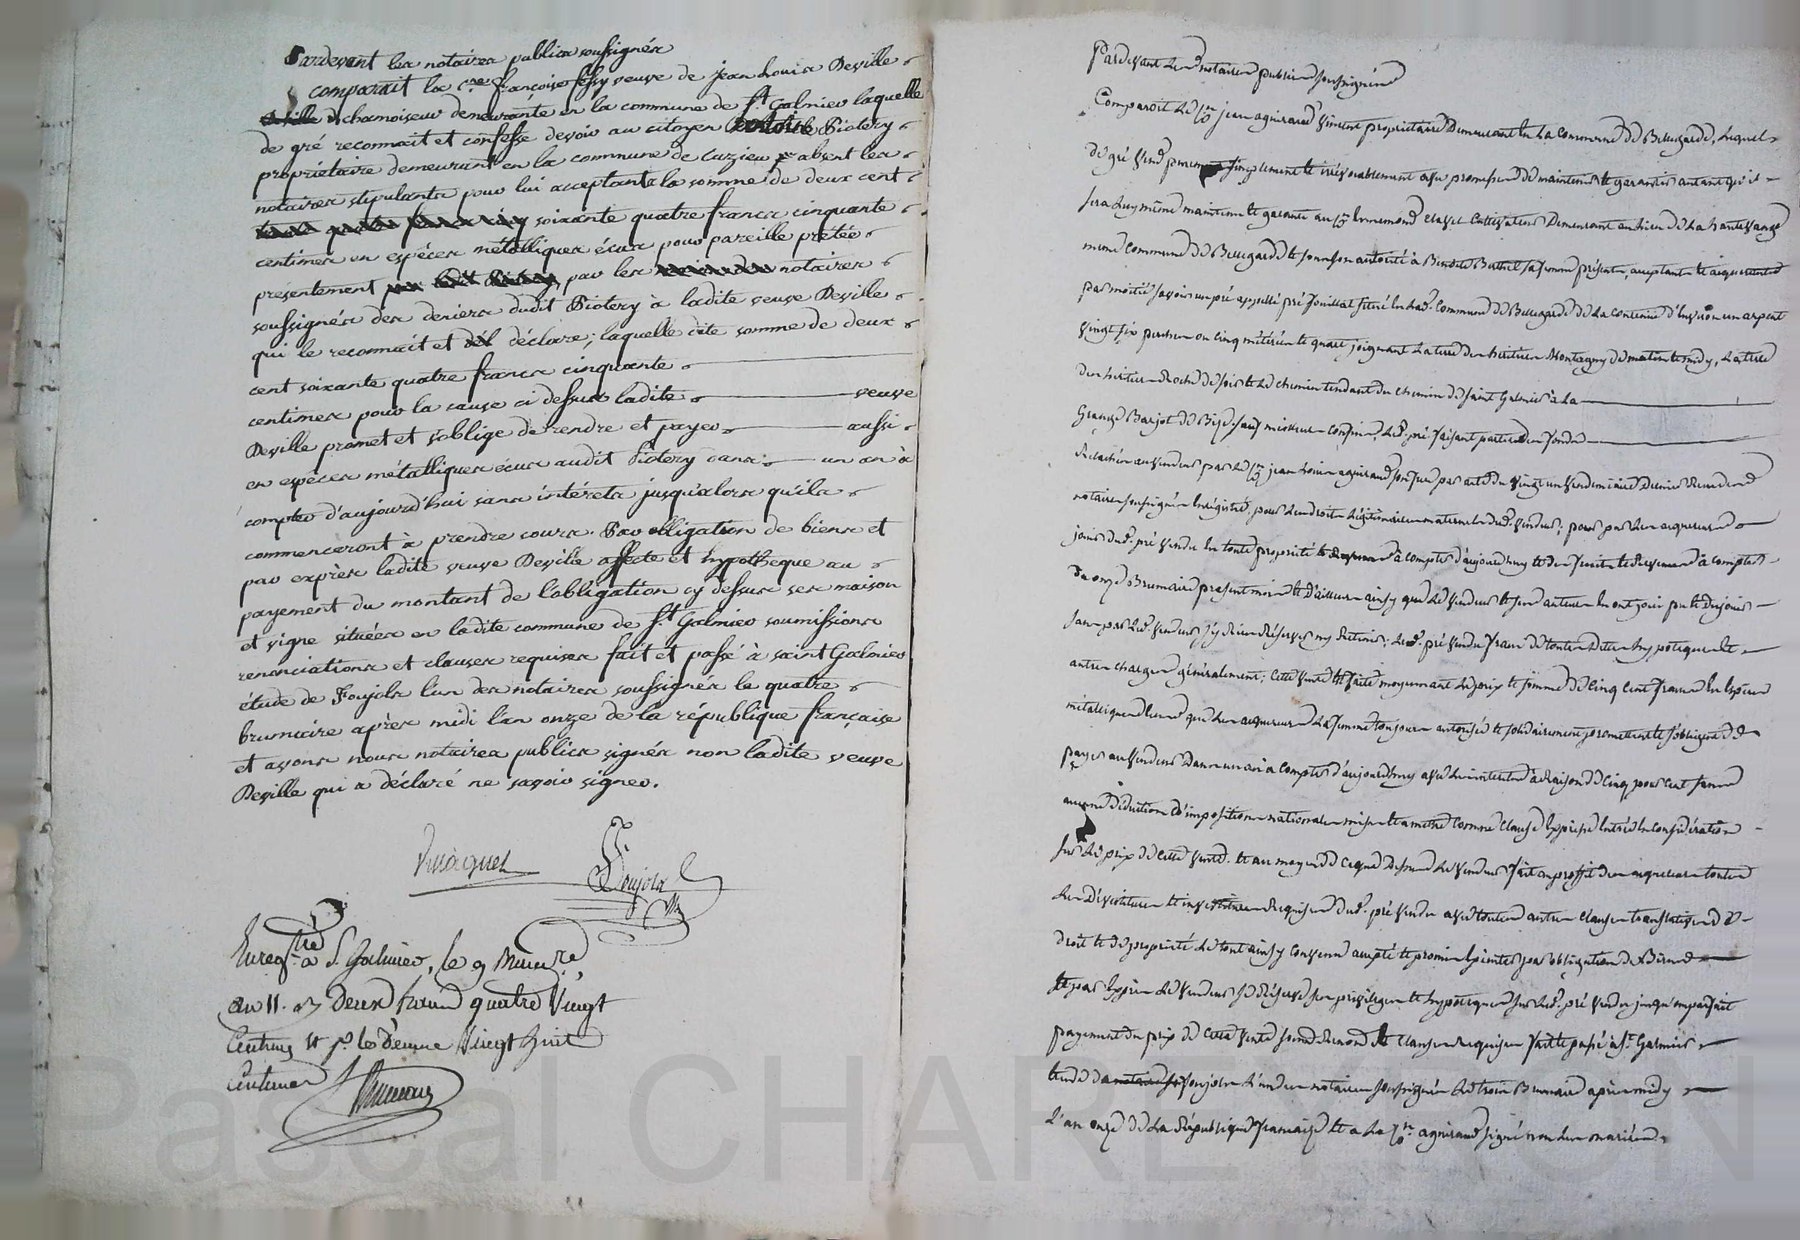 Pardevant les notaires publics soussignés
comparait la c.ne françoise fessy veuve de jean Louis Deville
chamoiseur demeurante en la commune de S.t Galmier laquelle
de gré reconnait et confesse devoir au citoyen Piotery
propriétaire demeurant en la commune de Cuzieu absent les
notaires stipulants pour lui acceptants la somme de deux cent
soixante quatre francs cinquante
centimes en espèces métalliques écus pour pareille prétée
présentement par les notaires
soussignés des deniers dudit Piotery à ladite veuve Deville
qui le reconnait et déclare; laquelle dite somme de deux
cent soixante quatre francs cinquante
centimes pour la cause ci dessus ladite veuve
Deville promet et s'oblige de rendre et payer aussi
en espèces métalliques écus audit Piotery dans un an à
compter d'aujourd'hui sans intérets jusqu'alors qu'ils
commenceront à prendre cours. Par obligation de biens et
par exprès ladite veuve Deville affecte et hypothèque au
payement du montant de l'obligation cy dessus ses maison
et vigne situées en ladite commune de S.t Galmier soumissions
renonciations et clauses requises fait et passé à saint Galmier
étude de Foujols l'un des notaires soussignés le quatre
brumaire après midi l'an onze de la république française
et avons nous notaires publics signés non ladite veuve
Deville qui a déclaré ne savoir signer.
Foujols
Enreg.tré à S. Galmier, le 9 Brum.re
an 11. Deux francs quatre vingt
Centimes et p.r le Dixme Vingt huit
Centimes
Pardevant les notaires publics soussignés
Comparoit le jean agniraud vincent propriétaire Demeurant en la Commune de Bellegarde, lequel
de gré vend purement simplement et irrévocablement avec promesse de maintenir et garantir autant qu'il
sera luy même maintenu et garanti au Cultivateur Demeurant au lieu de la
même Commune de Bellegarde et sous son autorité à Benoite Berthet sa femme présente, acceptants et acquereurs
par moitié savoir un pré appellé pré situé en lad. Commune de Bellegarde de la contenue d'environ un arpent
vingt six perches ou cinq métérées et quart joignant la terre des héritiers Montagny de matin et midy, la terre
des héritiers Roche de soir et le chemin tendant du chemin de saint Galmier à la
Grange Barjot de Bise, sauf meilleurs confins led. pré faisant partie des fonds
relachés au vendeur par le jean Louis agniraud son par acte du vingt un vendemiaire Dernier Reçu des
notaires soussignés Enregistré pour les droits légitimaires maternels dud. vendeur; pour par les acquereurs
jouir dud. pré vendu en toute propriété à compter d'aujourd'huy et des fruits et revenus à compter
du onze Brumaire present mois et d'ailleurs ainsy que le vendeur et ses auteurs en ont joui pu et du jouir
sans par led. vendeur s'y rien réserver ny retenir; led. pré vendu franc de toutes dettes hypothèques et
autres charges généralement; cette vente est faite moyennant le prix et somme de cinq cent francs en Espèces
métalliques que les acquereurs la femme toujours autorisée et solidairement promettent et s'obligent de
payer au vendeur dans un an à compter d'aujourd'huy avec les interets à Raison de cinq pour cent sans
aucune déduction d'impositions nationales mises et à mettre comme clause Expresse Entrée En considération
sur le prix de cette vente. et au moyen de ce que dessus le vendeur fait au proffit des acquereurs toutes
les Dévestitures et investitures Requises dud. pré vendu avec toutes autres clauses translatives de
droit et de propriété le tout ainsy convenu accepté et promis par obligation de Biens
et par Exprès le vendeur se Réserve son privilege et hypothèque sur led. pré vendu jusqu'au parfait
payement du prix de cette vente soum. Renon. et clauses requises fait et passé à S.t Galmier
étude de foujols l'un des notaires soussignés le trois Brumaire après midy
L'an onze de la République française et a le agniraud signé non les mariés